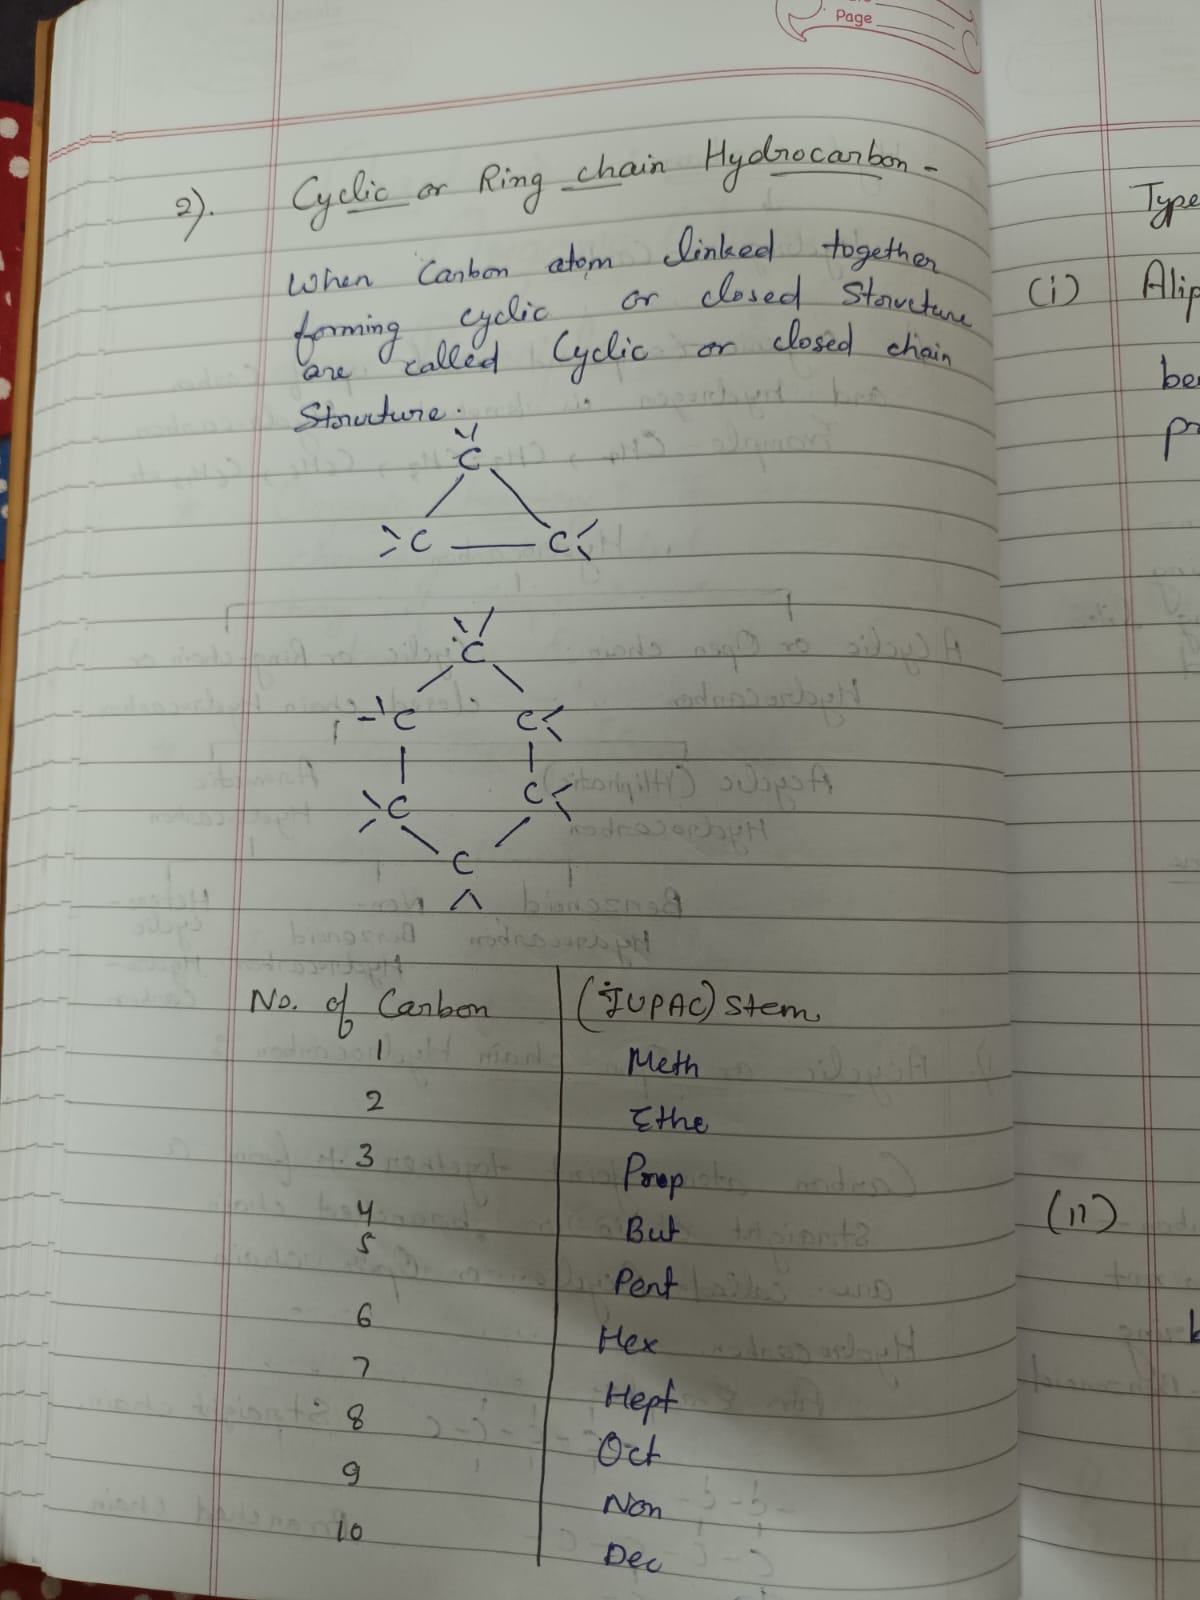 Page
2). Cyclic or Ring chain Hydrocarbon -
When Carbon atom linked together
forming cyclic or closed Structure
are called Cyclic or closed chain
Structure.
C
C C
C
C C
C C
C
No. of Carbon (IUPAC) Stem
1 Meth
2 Ethe
3 Prop
4 But
5 Pent
6 Hex
7 Hept
8 Oct
9 Non
10 Dec
Type
(i) Alip
be
pr
(11)